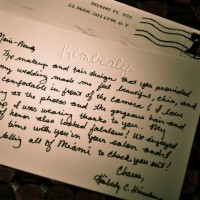 MIAMI FL 331
22 MAR 2011 PM 6 T
Kimberly
The makeup and hair designs that you provided
my wedding made me feel beautiful, chic, and
comfortable in front of the camera! I love
my photos and the gorgeous hair and
I was wearing thanks to you! My
of honor also looked fabulous! We enjoyed
time with you in your salon and
telling all of Miami to check you out!
Cheers,
Kimberly C.